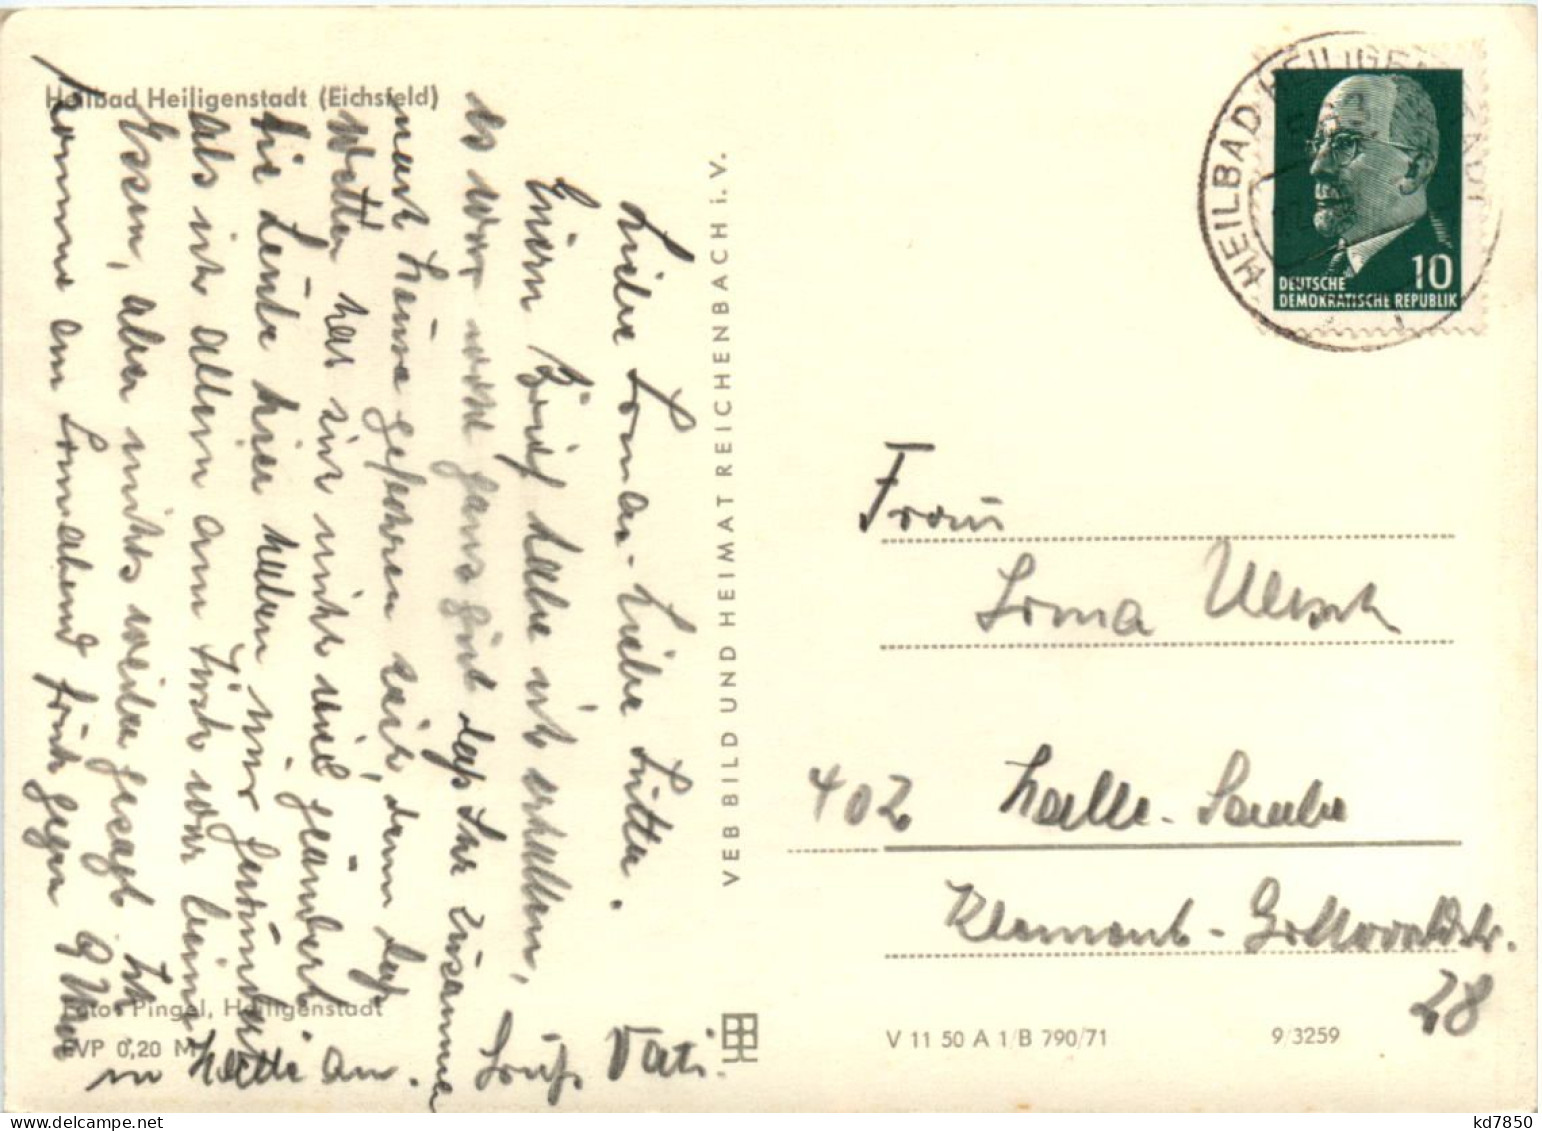 Heilbad Heiligenstadt (Eichsfeld)
Liebe Oma - Liebe Jutta.
Euern Brief habe ich erhalten,
es war wohl ganz gut daß Ihr zusammen
nach Hause gefahren seid, denn das
Wetter hat sich nicht viel geändert.
Die Leute hier haben nur
als ich allein am Tisch war beim
Essen, aber nichts weiter gesagt. Ich
komme am Sonnabend früh gegen 9 Uhr
in Halle an. Gruß Vati.
Foto: Pingel, Heiligenstadt
EVP 0,20 M
VEB BILD UND HEIMAT REICHENBACH i. V.
HEILBAD HEILIGENSTADT
10
DEUTSCHE
DEMOKRATISCHE REPUBLIK
Frau
Irma
402 Halle - Saale
Klement - Gottwaldstr.
28
V 11 50 A 1/B 790/71
9/3259
kd7850